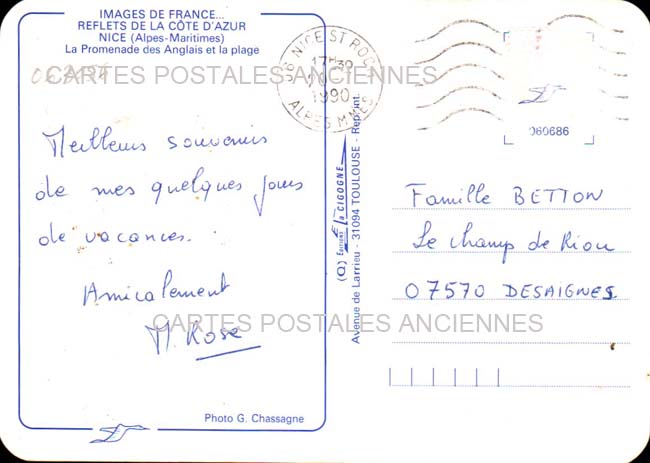 IMAGES DE FRANCE...
REFLETS DE LA CÔTE D'AZUR
NICE (Alpes-Maritimes)
La Promenade des Anglais et la plage
CARTES POSTALES ANCIENNES
06 NICE ST ROCH
17H30
1990
ALPES MMES
060686
Meilleurs souvenirs
de mes quelques jours
de vacances.
Amicalement
M. Rose
Famille BETTON
Le Champ de Riou
07570 DESAIGNES
CARTES POSTALES ANCIENNES
Editions la CIGOGNE
Avenue de Larrieu - 31094 TOULOUSE - Reprint.
Photo G. Chassagne